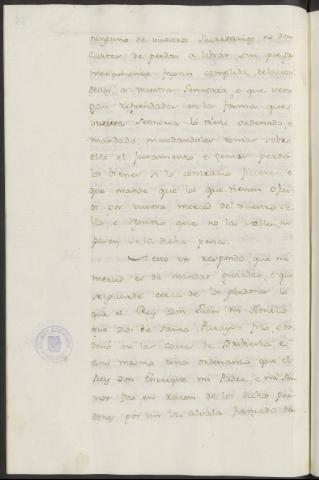 ninguno de vuestros Secretarios no den
Cartas de perdon a librar, sin que pri
meramente fagan complida relacion
dellas, a vuestra Sennoria, e que vayan
refrendadas en la forma que
vuestra Sennoria lo tiene ordenado, e
mandado, mandandoles tomar sobre
ello el juramento, e penas perder
los bienes si lo contrario ficieren, e
que mande que los que tienen ofi
por vuestra merced del vuestro Se
llo, e que no la sellen,
so la dicha pena.
A esto vos respondo que mi
merced es de mandar guardar, e que
se guarde cerca de los perdones lo
que el Rey Don Juan mi Abuelo
que Dios de Santo Parayso fizo, e or
denó en las Cortes de Bribiesca, e
ansi mesmo una ordenanza que el
Rey Don Enrique mi Padre, e mi Sen
nor fizo en razon de los dichos per
dones por un su alvala firmado de